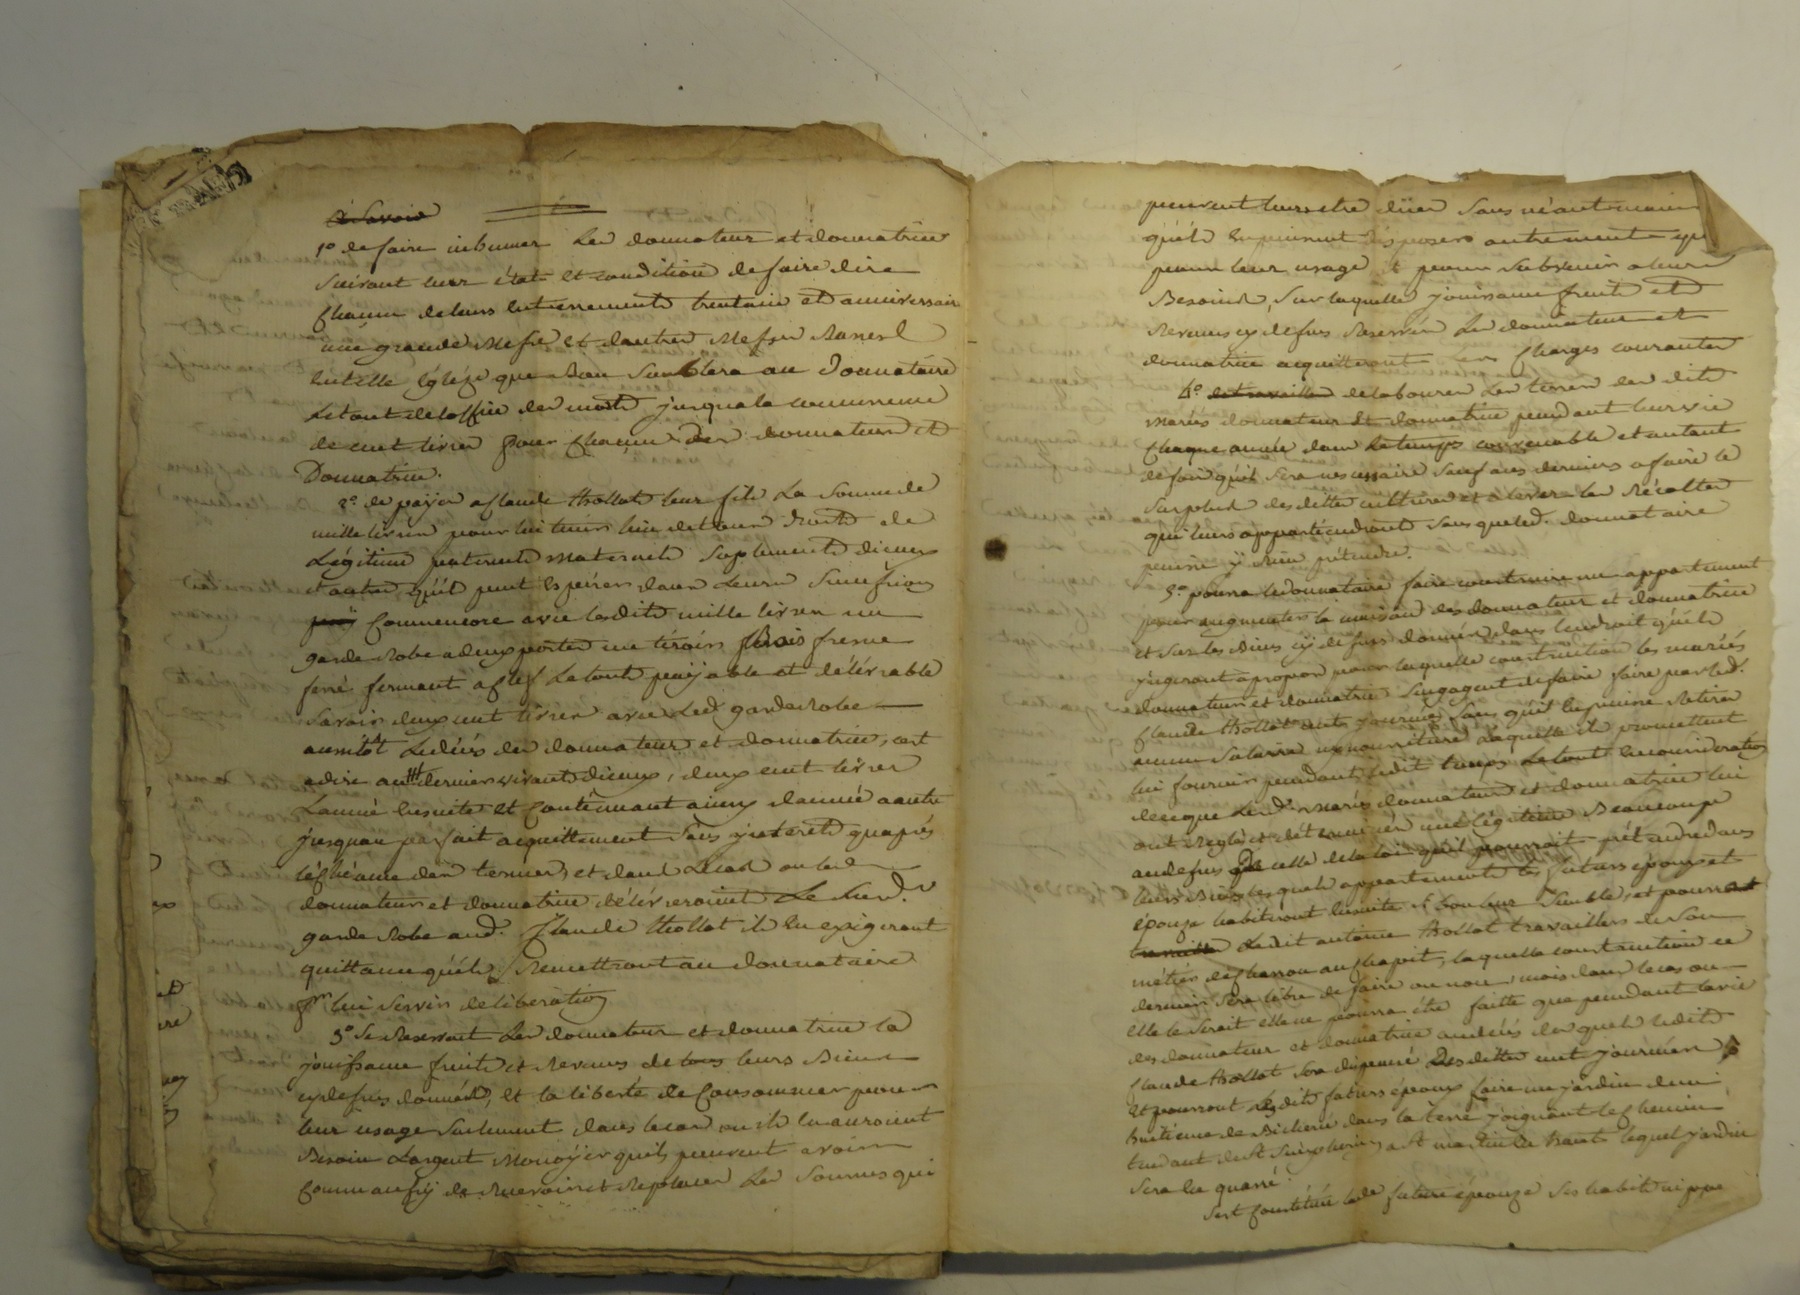 à savoir
1º de faire inhumer les donnateur et donnatrice
suivant leur état et condition de faire dire
chacun de leurs enterrements trentain et anniversaire
une grande Messe et dautres Messes Basses
en telle église que bon semblera au Donnataire
le tout de loffice des morts jusquala concurrence
de cent livres pour chacun des donnateur et
Donnatrice.
2º de payer a Claude thollot leur fils la somme de
mille livres pour lui tenir lieu de tous droits de
Légitime paternels maternels suplement diceux
et autres qu'il peut espérer dans leurs successions
comme encore avec lesdits mille livres un
garde Robe a deux portes un tiroir Bois fresne
ferré fermant a clef le tout payable et délivrable
savoir deux cent livres avec led garde Robe
aussitôt le décès des donnateur et donnatrice, cest
adire au dernier vivant diceux, deux cent livres
Lannée ensuite et continuant ainsy dannée a autre
jusquau parfait acquittement sans interets quaprés
léchéance des termes, et dans le cas ou les
donnateur et donnatrice délivreroint Le sud.
garde Robe aud. Claude thollot ils en exigeront
quittance qu'ils Remettront au donnataire
pr lui servir de libération
3º Se Reservent Les donnateur et donnatrice la
jouissance fruits et Revenus de tous leurs Biens
cy dessus donnés, et la liberté de Consommer pour
leur usage seulement dans le cas ou ils en auroient
Besoin Largent Monoyé qu'ils peuvent avoir
comm'aussy de Recevoir et Replacer Les sommes qui
peuvent leurs etre dües sans néantmoins
qu'ils en puissent disposer autrement que
pour leur usage et pour subvenir a leurs
Besoins, sur laquelle jouissance fruits et
Revenus cy dessus Reservés Les donnateur et
donnatrice acquitteront les charges courantes
4º de travailler de labourer Les terres des dits
mariés donnateur et donnatrice pendant leur vie
chaque année dans le temps convenable et autant
de fois qu'il sera nécessaire sauf aux derniers a faire le
surplus des dittes cultures et a lever les Récoltes
qui leurs appartiendront sans que led. donnataire
puisse y rien prétendre.
5º pourra le donnataire faire construire un appartement
pour augmenter la maison des donnateur et donnatrice
et sur les Biens cy dessus donnés dans l'endroit qu'ils
jugeront apropos pour laquelle construction les mariés
donnateur et donnatrice s'engagent de faire faire par led.
Claude thollot cent journées sans qu'il en puisse Retirer
aucun salaire ny nourriture laquelle ils promettent
lui fournir pendant ledit temps le tout en considération
de ce que Lesd. Mariés donnateur et donnatrice lui
ont Reglé et déterminé une légitime Beaucoup
audessus de celle de la loi qu'il pourroit prétendre dans
leurs Biens lesquels appartements les futurs époux et
épouse habiteront ensuite si bon leur semble, et pourra
travailler Ledit antoine thollot travailler de son
métier de charron au chapit, laquelle construction ce
dernier sera libre de faire ou non, mais dans le cas ou
elle le seroit elle ne pourra être faitte que pendant la vie
des donnateur et donnatrice au décès des quels ledit
Claude thollot sera dispensé des dittes cent journées
et pourront lesdits futurs époux faire un jardin demi
huitieme de Bicherée dans la terre joignant le chemin
tendant de St Simphorien a St martin en haut lequel jardin
sera en quarré.
Sest constituée lade future épouse ses habits nippe